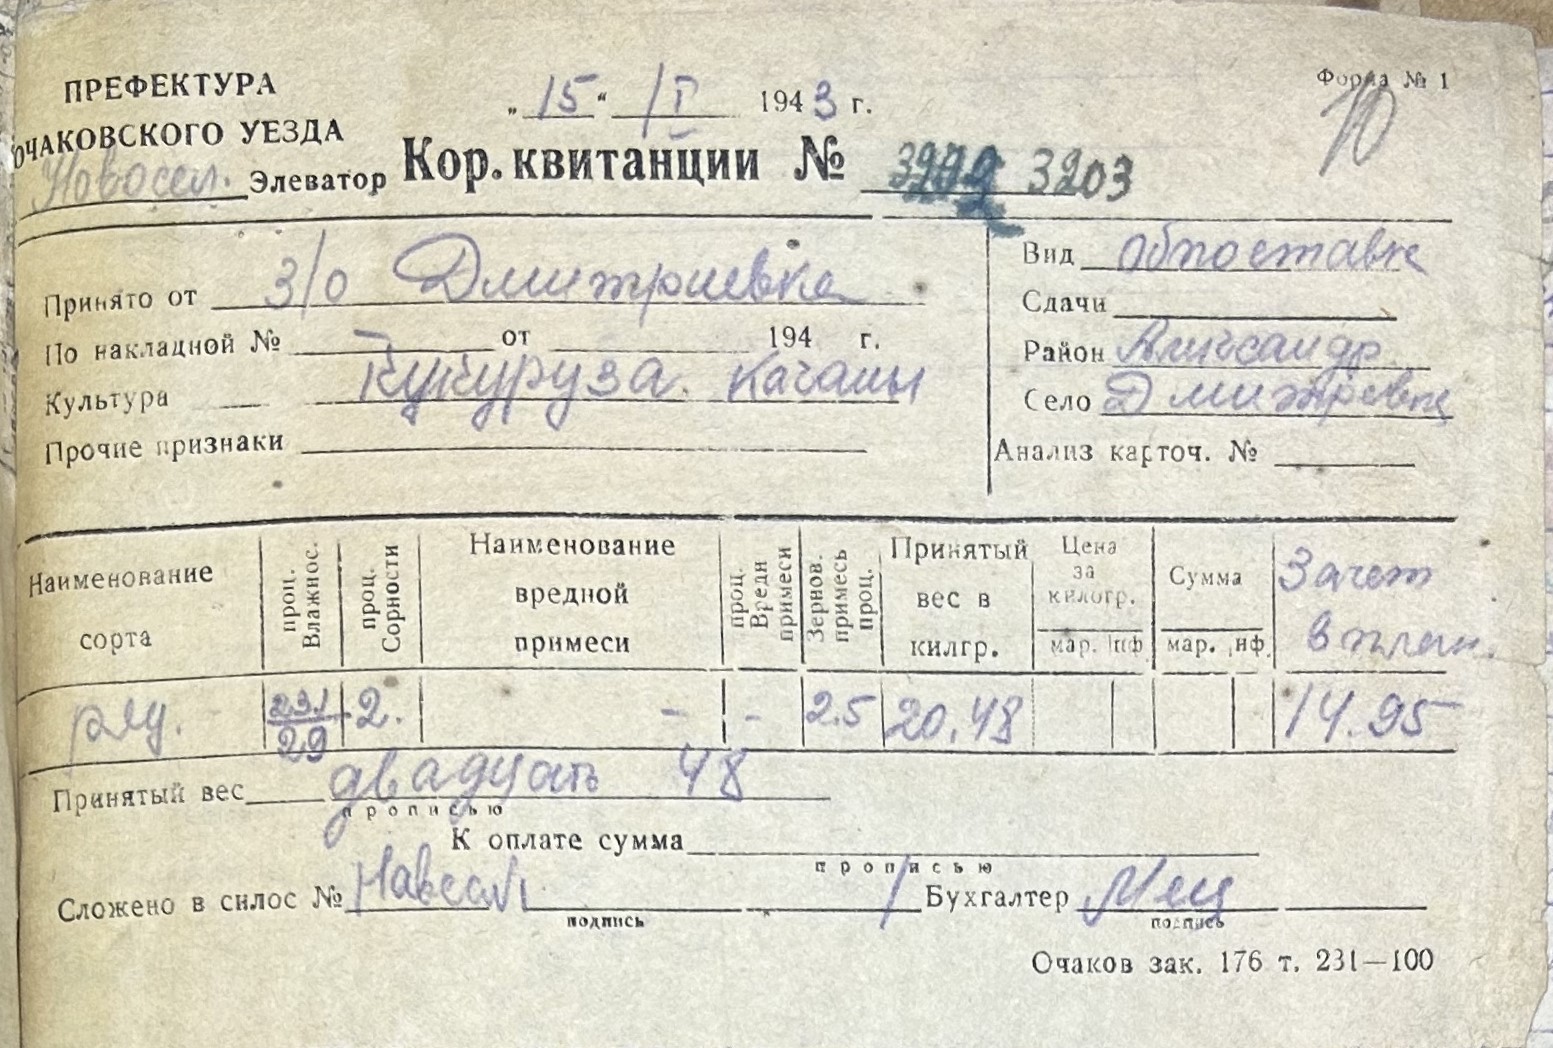 ПРЕФЕКТУРА
ОЧАКОВСКОГО УЕЗДА
Новосел. Элеватор
„15“ I 1943 г.
Форма № 1
10
Кор. квитанции № 3203
Принято от з/о Дмитриевка
По накладной № — от 194 г.
Культура Кукуруза. качаны
Прочие признаки
Вид обпоставка
Сдачи
Район Александр.
Село Дмитревка
Анализ карточ. №
Наименование сорта
проц. Влажнос.
проц. Сорности
Наименование вредной примеси
проц. Вредн примеси
Зернов. примесь проц.
Принятый вес в килгр.
Цена за килогр.
мар. пф
Сумма
мар. пф.
Зачет в план.
ряд. 231/29 2. - - 2.5 20.48 14.95
Принятый вес двадцать 48
прописью
К оплате сумма
прописью
Сложено в силос № Навесал Бухгалтер
подпись подпись
Очаков зак. 176 т. 231—100